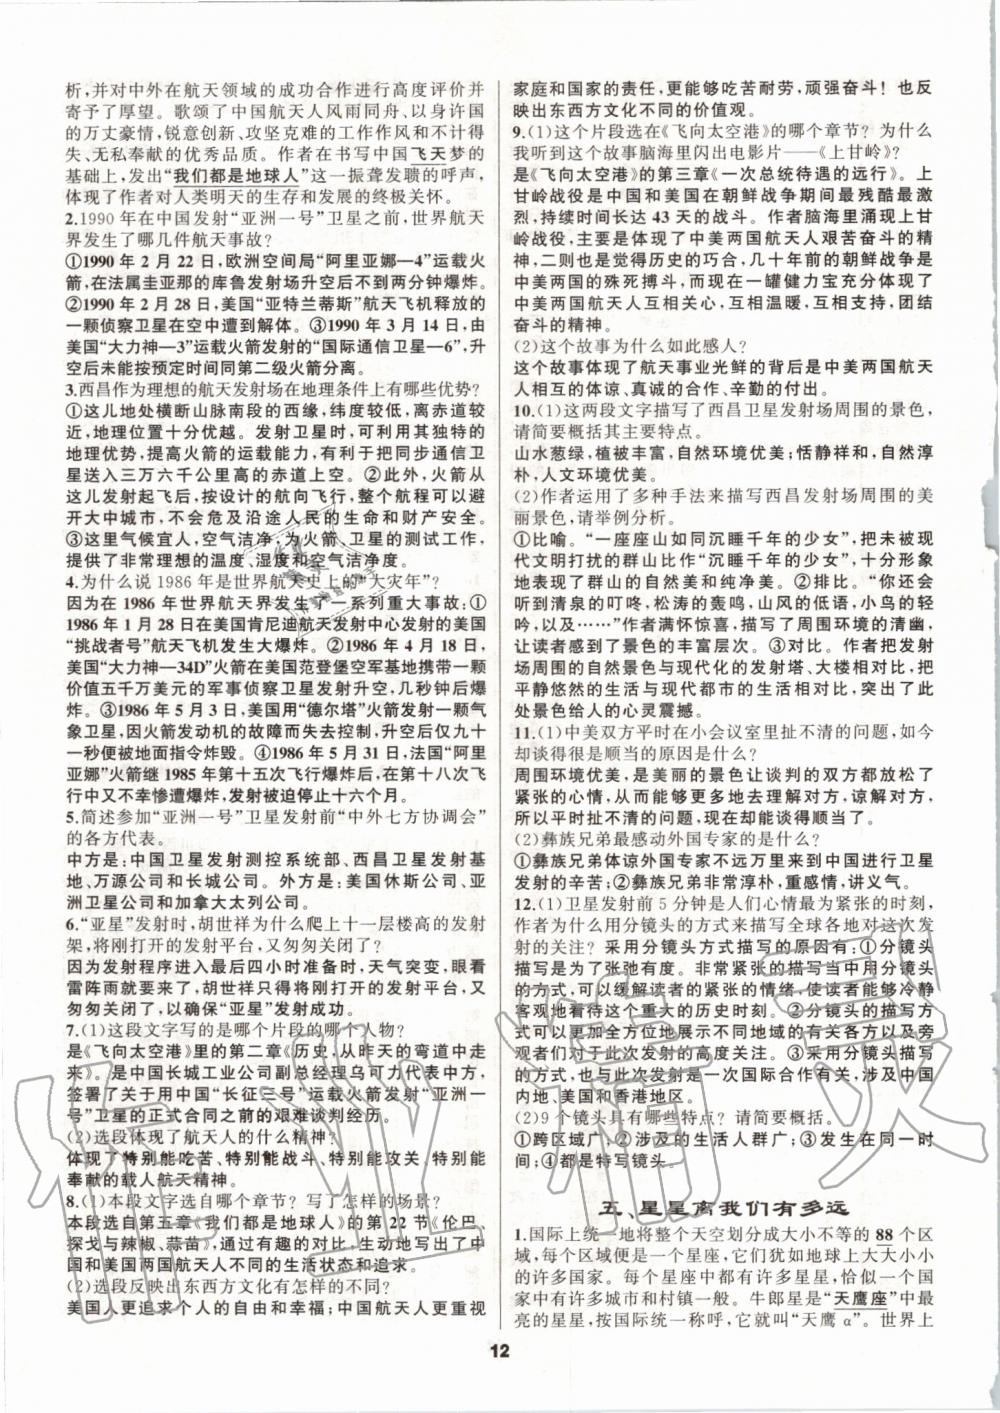 析,并对中外在航天领域的成功合作进行高度评价并
寄予了厚望。歌颂了中国航天人风雨同舟、以身许国
的万丈豪情,锐意创新、攻坚克难的工作作风和不计得
失、无私奉献的优秀品质。作者在书写中国飞天梦的
基础上,发出“我们都是地球人”这一振聋发聩的呼声,
体现了作者对人类明天的生存和发展的终极关怀。
2.1990年在中国发射“亚洲一号”卫星之前,世界航天
界发生了哪几件航天事故?
①1990年2月22日,欧洲空间局“阿里亚娜—4”运载火
箭,在法属圭亚那的库鲁发射场升空后不到两分钟爆炸。
②1990年2月28日,美国“亚特兰蒂斯”航天飞机释放的
一颗侦察卫星在空中遭到解体。③1990年3月14日,由
美国“大力神—3”运载火箭发射的“国际通信卫星—6”,升
空后未能按预定时间同第二级火箭分离。
3.西昌作为理想的航天发射场在地理条件上有哪些优势?
①这儿地处横断山脉南段的西缘,纬度较低,离赤道较
近,地理位置十分优越。发射卫星时,可利用其独特的
地理优势,提高火箭的运载能力,有利于把同步通信卫
星送入三万六千公里高的赤道上空。②此外,火箭从
这儿发射起飞后,按设计的航向飞行,整个航程可以避
开大中城市,不会危及沿途人民的生命和财产安全。
③这里气候宜人,空气洁净,为火箭、卫星的测试工作,
提供了非常理想的温度、湿度和空气洁净度。
4.为什么说1986年是世界航天史上的“大灾年”?
因为在1986年世界航天界发生了一系列重大事故:①
1986年1月28日在美国肯尼迪航天发射中心发射的美国
“挑战者号”航天飞机发生大爆炸。②1986年4月18日,
美国“大力神—34D”火箭在美国范登堡空军基地携带一颗
价值五千万美元的军事侦察卫星发射升空,几秒钟后爆
炸。③1986年5月3日,美国用“德尔塔”火箭发射一颗气
象卫星,因火箭发动机的故障而失去控制,升空后仅九十
一秒便被地面指令炸毁。④1986年5月31日,法国“阿里
亚娜”火箭继1985年第十五次飞行爆炸后,在第十八次飞
行中又不幸惨遭爆炸,发射被迫停止十六个月。
5.简述参加“亚洲一号”卫星发射前“中外七方协调会”
的各方代表。
中方是:中国卫星发射测控系统部、西昌卫星发射基
地、万源公司和长城公司。外方是:美国休斯公司、亚
洲卫星公司和加拿大太列公司。
6.“亚星”发射时,胡世祥为什么爬上十一层楼高的发射
架,将刚打开的发射平台,又匆匆关闭了?
因为发射程序进入最后四小时准备时,天气突变,眼看
雷阵雨就要来了,胡世祥只得将刚打开的发射平台,又
匆匆关闭了,以确保“亚星”发射成功。
7.(1)这段文字写的是哪个片段的哪个人物?
是《飞向太空港》里的第二章《历史,从昨天的弯道中走
来》。是中国长城工业公司副总经理乌可力代表中方,
签署了关于用中国“长征三号”运载火箭发射“亚洲一
号”卫星的正式合同之前的艰难谈判经历。
(2)选段体现了航天人的什么精神?
体现了特别能吃苦、特别能战斗、特别能攻关、特别能
奉献的载人航天精神。
8.(1)本段文字选自哪个章节?写了怎样的场景?
本段选自第五章《我们都是地球人》的第22节《伦巴、
探戈与辣椒、蒜苗》,通过有趣的对比,生动描写出了中
国和美国两国航天人不同的生活状态和追求。
(2)选段反映出东西方文化有怎样的不同?
美国人更追求个人的自由和幸福;中国航天人更重视
家庭和国家的责任,更能够吃苦耐劳,顽强奋斗!也反
映出东西方文化不同的价值观。
9.(1)这个片段选在《飞向太空港》的哪个章节?为什么
我听到这个故事脑海里闪出电影片——《上甘岭》?
是《飞向太空港》的第三章《一次总统待遇的远行》。上
甘岭战役是中国和美国在朝鲜战争期间最残酷最激
烈,持续时间长达43天的战斗。作者脑海里涌现上甘
岭战役,主要是体现了中美两国航天人艰苦奋斗的精
神,二则也是觉得历史的巧合,几十年前的朝鲜战争是
中美两国的殊死搏斗,而现在一罐健力宝充分体现了
中美两国航天人互相关心,互相温暖,互相支持,团结
奋斗的精神。
(2)这个故事为什么如此感人?
这个故事体现了航天事业光鲜的背后是中美两国航天
人相互的体谅、真诚的合作、辛勤的付出。
10.(1)这两段文字描写了西昌卫星发射场周围的景色,
请简要概括其主要特点。
山水葱绿,植被丰富,自然环境优美;恬静祥和,自然淳
朴,人文环境优美。
(2)作者运用了多种手法来描写西昌发射场周围的美
丽景色,请举例分析。
①比喻。“一座座山如同沉睡千年的少女”,把未被现
代文明打扰的群山比作“沉睡千年的少女”,十分形象
地表现了群山的自然美和纯净美。②排比。“你还会
听到清泉的叮咚,松涛的轰鸣,山风的低语,小鸟的轻
吟,以及……”作者满怀惊喜,描写了周围环境的清幽,
让读者感受到景色的丰富层次。③对比。作者把发射
场周围的自然景色与现代化的发射塔、大楼相对比,把
平静悠然的生活与现代都市的生活相对比,突出了此
处景色给人的心灵震撼。
11.(1)中美双方平时在小会议室里扯不清的问题,如今
却谈得很是顺当的原因是什么?
周围环境优美,是美丽的景色让谈判的双方都放松了
紧张的心情,从而能够更多地去理解对方,谅解对方,
所以平时扯不清的问题,现在却能谈得顺当了。
(2)彝族兄弟最感动外国专家的是什么?
①彝族兄弟体谅外国专家不远万里来到中国进行卫星
发射的辛苦;②彝族兄弟非常淳朴,重感情,讲义气。
12.(1)卫星发射前5分钟是人们心情最为紧张的时刻,
作者为什么用分镜头的方式来描写全球各地对这次发
射的关注?采用分镜头方式描写的原因有:①分镜头
描写是为了张弛有度。非常紧张的描写中用分镜头
的方式,可以缓解读者的紧张的情绪,使读者能够冷静
客观地看待这个重大的历史时刻;②分镜头的描写方
式可以更加全方位地展示不同地域的有关各方以及旁
观者们对于此次发射的高度关注。③采用分镜头描写
的方式,也与此次发射是一次国际合作有关,涉及中国
内地、美国和香港地区。
(2)9个镜头具有哪些特点?请简要概括。
①跨区域广;②涉及的生活人群广;③发生在同一时
间;④都是特写镜头。
五、星星离我们有多远
1.国际上统一地将整个天空划分成大小不等的88个区
域,每个区域便是一个星座,它们犹如地球上大大小小
的许多国家。每个星座中都有许多星星,恰似一个国
家中有许多城市和村镇一般。牛郎星是“天鹰座”中最
亮的星星,按国际统一称呼,它就叫“天鹰α”。世界上
12